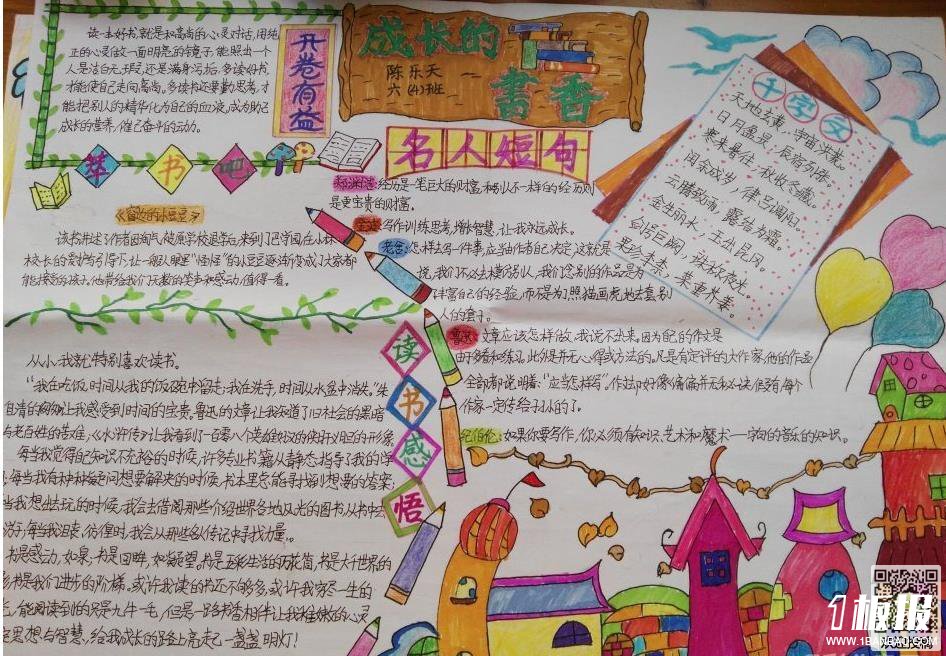 成长的
書香
陈乐天
六(4)班
开卷有益
读一本好书,就是和高尚的心灵对话,用纯
正的心灵做一面明亮的镜子,能照出一个
人是洁白无瑕,还是满身污垢,多读好书,
才能使自己走向高尚。多读书还要勤思考,才
能把别人的精华化为自己的血液,成为助己
成长的营养,催己奋斗的动力。
书吧
千字文
天地玄黄,宇宙洪荒。
日月盈昃,辰宿列张。
寒来暑往,秋收冬藏。
闰余成岁,律吕调阳。
云腾致雨,露结为霜。
金生丽水,玉出昆冈。
剑号巨阙,珠称夜光。
果珍李柰,菜重芥姜。
名人短句
郑渊洁:经历是一笔巨大的财富,和别人不一样的经历则
是更宝贵的财富。
写作训练思考,增长智慧,让我永远成长。
老舍:怎样去写一件事,应当由作者自己决定,这就是
说,我们不必去模仿别人,我们念别的作品是为
丰富自己的经验,而不是为了照猫画虎地去套别
人的套子。
鲁迅:文章应该怎样做,我说不出来。因为自己的作文是
由于多看和练习,此外是并无心得或方法的。凡是有定评的大作家,他的作品
全部都说明着:“应当怎样写”。
作家一定传给子孙的了。
纪伯伦:如果你要写作,你必须有知识、艺术和魔术——字句的音乐的知识。
《窗边的小豆豆》
该书讲述了作者因淘气被原学校退学后,来到了巴学园,在小林
校长的爱护与引导下,让一般人眼里“怪怪”的小豆豆逐渐变成了大家都
能接受的孩子。他带给我们无数的笑声和感动,值得一看。
读书感悟
从小,我就特别喜欢读书。
“我在吃饭,时间从我的饭碗中留走;我在洗手,时间从水盆中消失。”朱
自清的《匆匆》让我感受到时间的宝贵。鲁迅的文章让我知道了旧社会的黑暗
与老百姓的苦难,《水浒传》让我看到了一百零八个英雄好汉的侠肝义胆的形象
每当我觉得自己知识不充裕的时候,许多专业书籍从静态指导了我的学
每当我有种种疑问想要解决的时候,书本里总能寻找到想要的答案;
当我想出去玩的时候,我会去借阅那些介绍世界各地风光的图书,从书中去
每当我沮丧、彷徨时,我会从那些名人传记中寻找力量。
书是感动,如泉,书是回眸,如凝望,书是五彩生活的万花筒,书是大千世界的
书是我们进步的阶梯。或许我读的书还不够多,或许我穷尽一生的
能阅读到的只是九牛一毛,但是一路书香相伴,让我稚嫩的心灵
思想与智慧,给我成长的路上亮起一盏盏明灯!
1板报
WWW.1BANBAO.COM
欢迎投稿